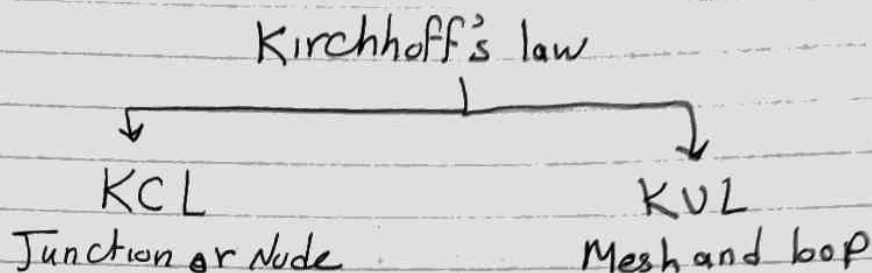 Kirchhoff's law
KCL KVL
Junction or Node Mesh and loop